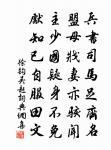 兵書司馬足名
盟母戕妻亦駭聞
主少國疑身不免
獻知已自服田文
徐鈞吳起詞典網集